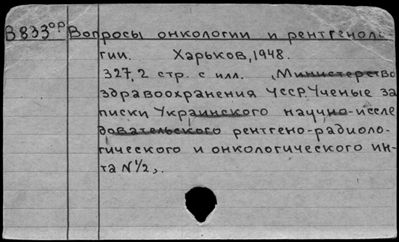 В833ор Вопросы онкологии и рентгеноло-
гии. Харьков, 1948.
327,2 стр. с илл. (Министерство
здравоохранения УССР. Ученые за
писки Украинского научно-иссле
довательского рентгено-радиоло-
гического и онкологического ин-
та N 1/2).